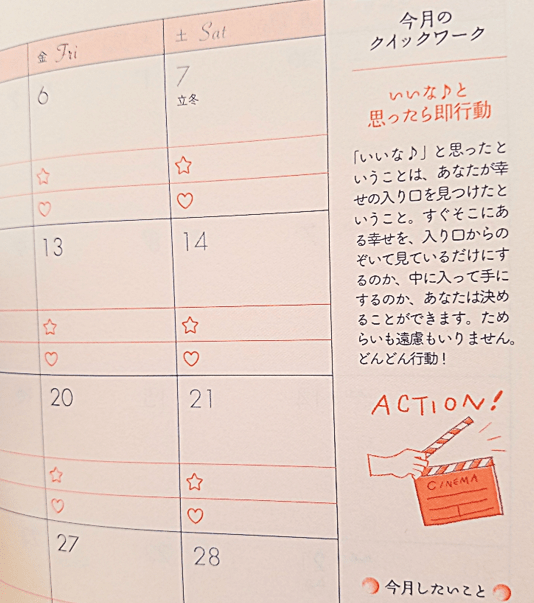 金 Fri
土 Sat
6
7
立冬
13
14
20
21
27
28
今月の
クイックワーク
いいな♪と
思ったら即行動
「いいな♪」と思ったと
いうことは、あなたが幸
せの入り口を見つけたと
いうこと。すぐそこにあ
る幸せを、入り口からの
ぞいて見ているだけにす
るのか、中に入って手に
するのか、あなたは決め
ることができます。ため
らいも遠慮もいりません。
どんどん行動!
ACTION!
CINEMA
今月したいこと